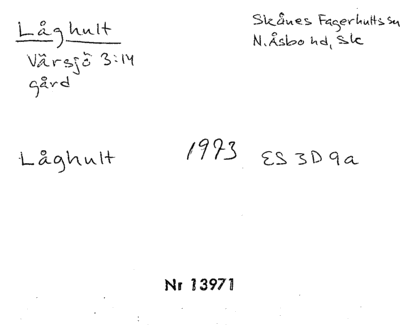 Låghult
Skånes Fagerhults sn
Värsjö 3:14
N. Åsbo hd, Sk
gård
Låghult 1973 ES 3D9a
Nr 13971